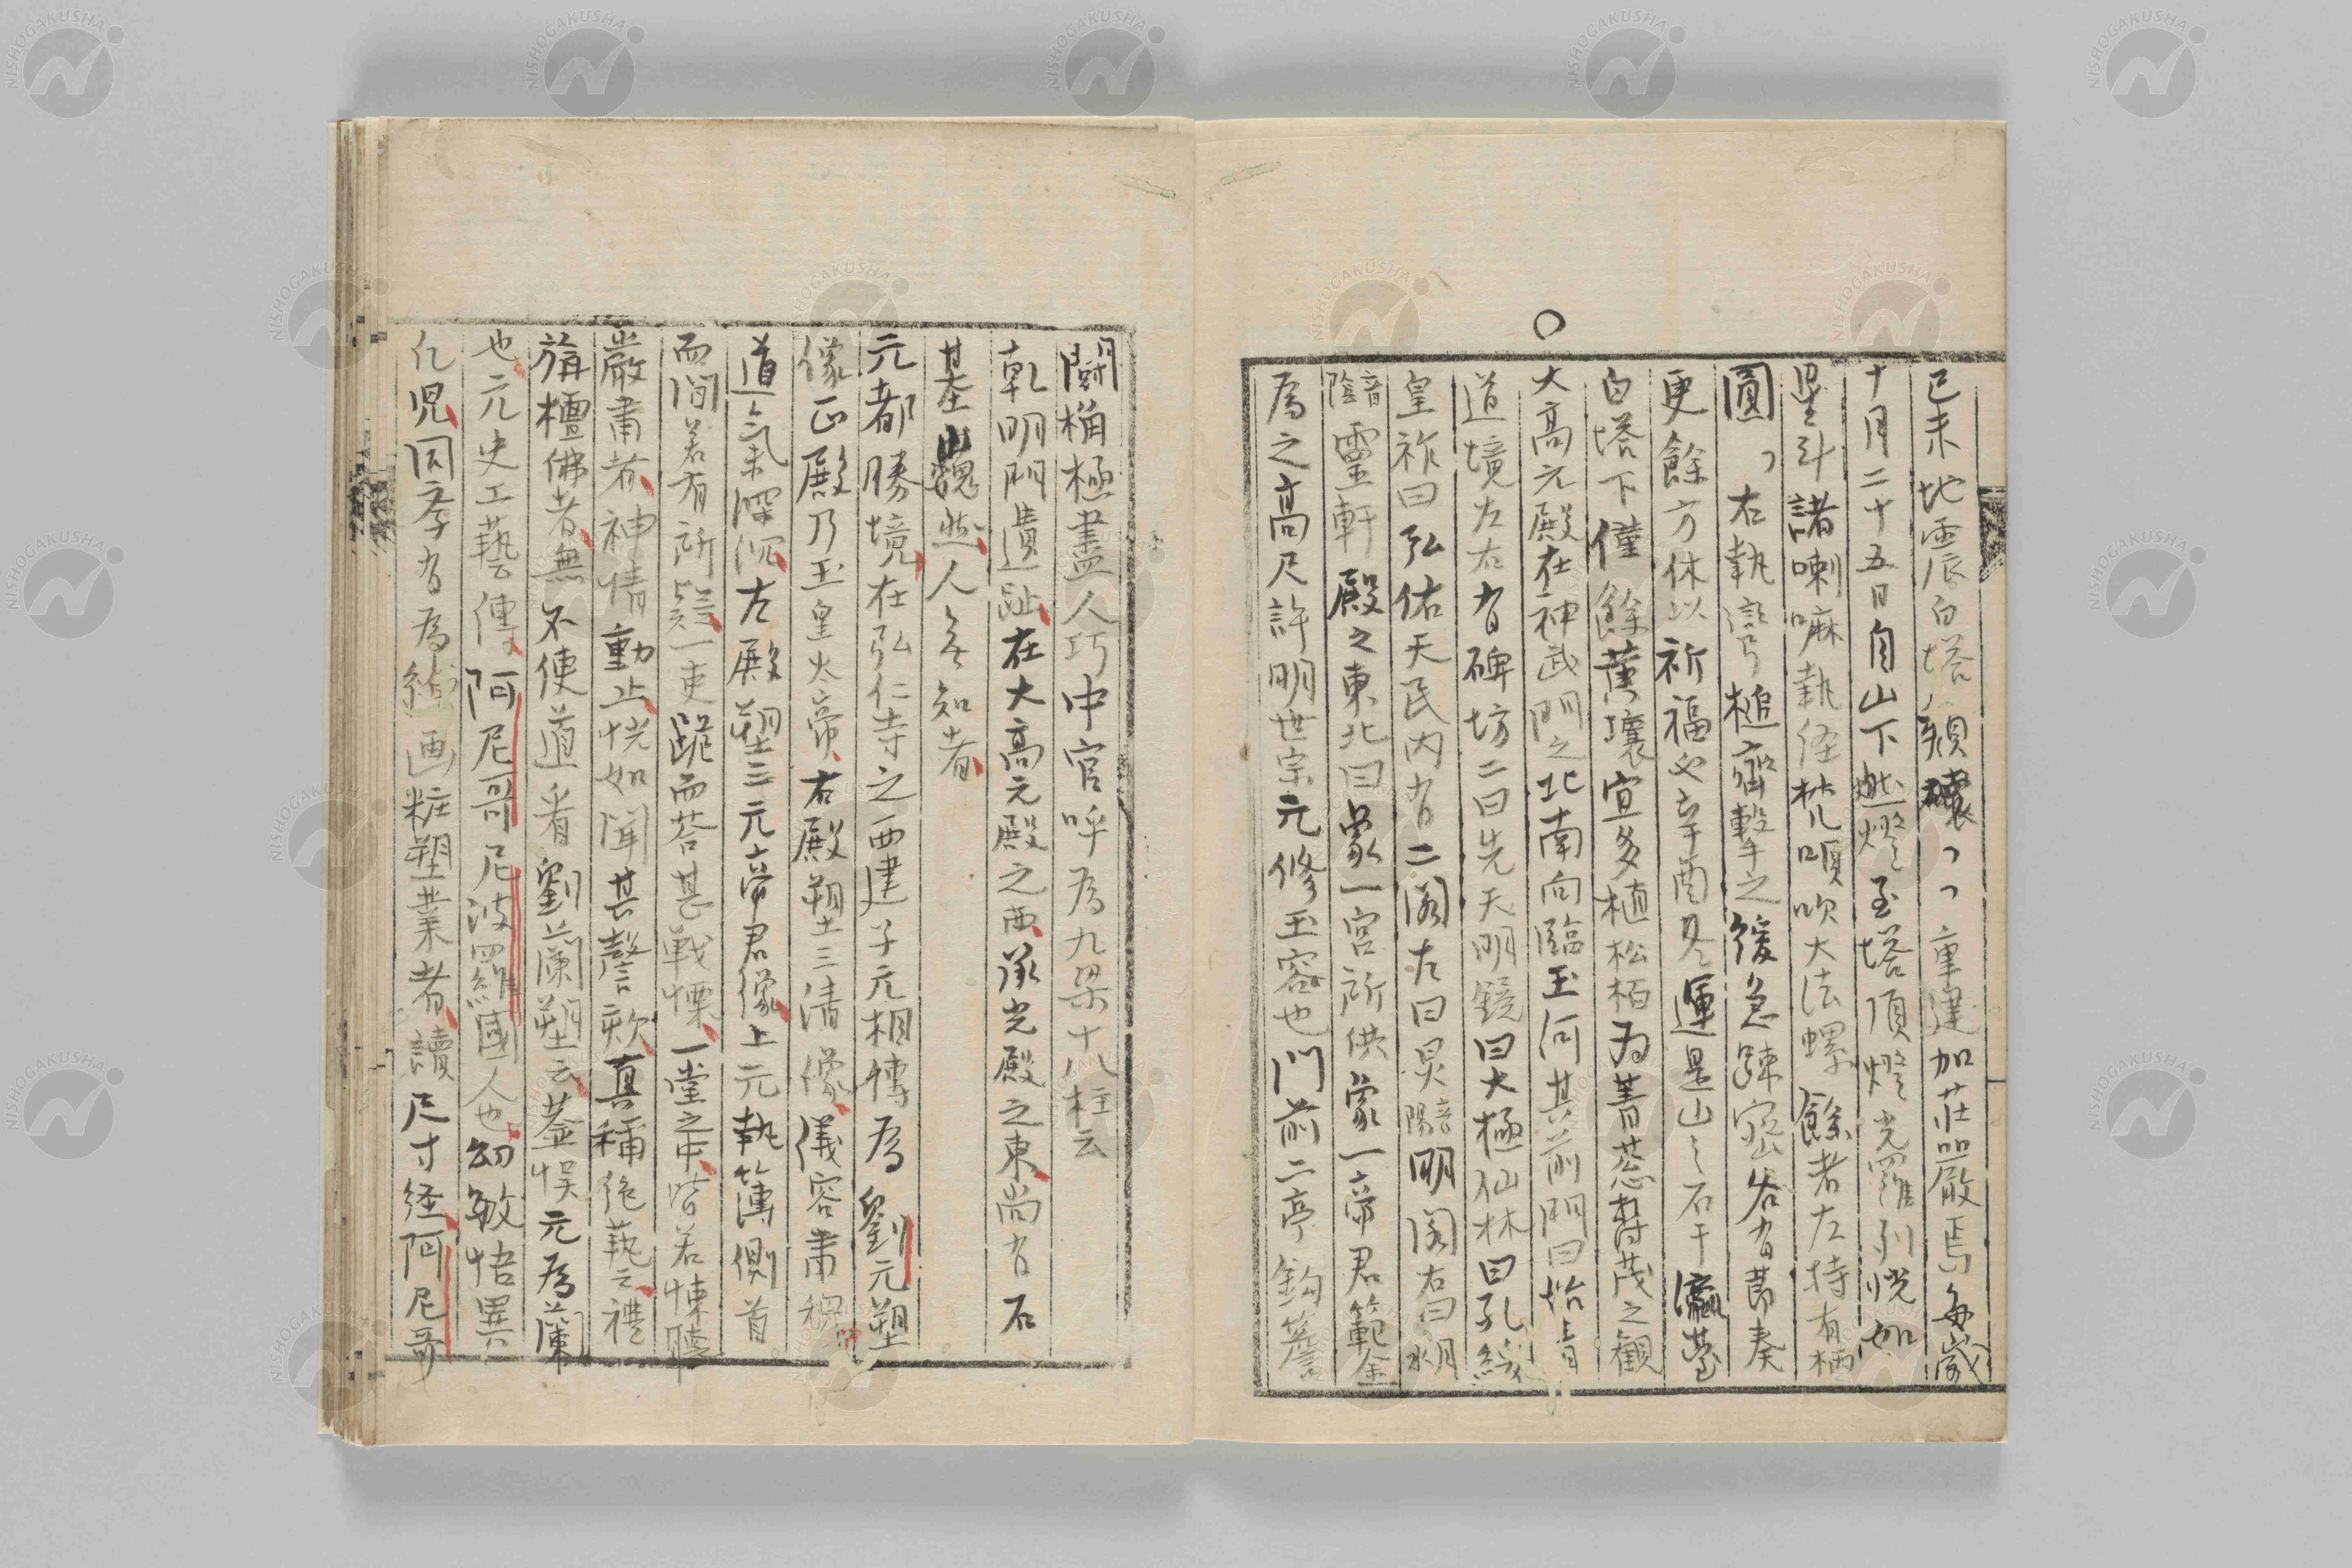 己未地震白塔頽壞〻〻重建加莊嚴焉每歲
十月二十五日自山下燃燈至塔頂燈光羅列恍如
星斗諸喇嘛執経梵唄吹大法螺餘者左持有柄
圓〻右執彎槌齊擊之緩急踈密各有節奏
更餘方休以祈福也辛酉冬運是山之石于瀛臺
白塔下僅餘黄壤宜多植松栢為菁葱樹茂之観
大高元殿在神武門之北南向臨玉河其前門曰始青
道境左右有碑坊二曰先天明鏡曰大極仙林曰孔綏
皇祚曰弘佑天民内有二閣左曰炅音陽明閣右曰䏃音
陰靈軒殿之東北曰象一宮所供象一帝君範金
為之高尺許明世宗元修玉容也門前二亭鈎簷
鬪桷極盡人巧中官呼為九梁十八柱云
乾明門遺趾在大高元殿之西承光殿之東尚有石
基巍然人無知者
元都勝境在弘仁寺之西建于元相傳為劉元塑
像正殿乃玉皇大帝右殿塑三清像儀容肅穆
道氣深沉左殿塑三元帝君像上元執簿側首
而問若有所疑一吏跪而答甚戰慄一堂之中皆若悚聽
嚴肅者神情動止恍如聞其謦欬真稱絶藝云禮
旃檀佛者無不便道看劉蘭塑云葢悞元為蘭
也元史工藝傳阿尼哥尼波羅國人也幼敏悟異
凡児同學有為繪画粧塑業者讀尺寸経阿尼哥
NISHOGAKUSHA